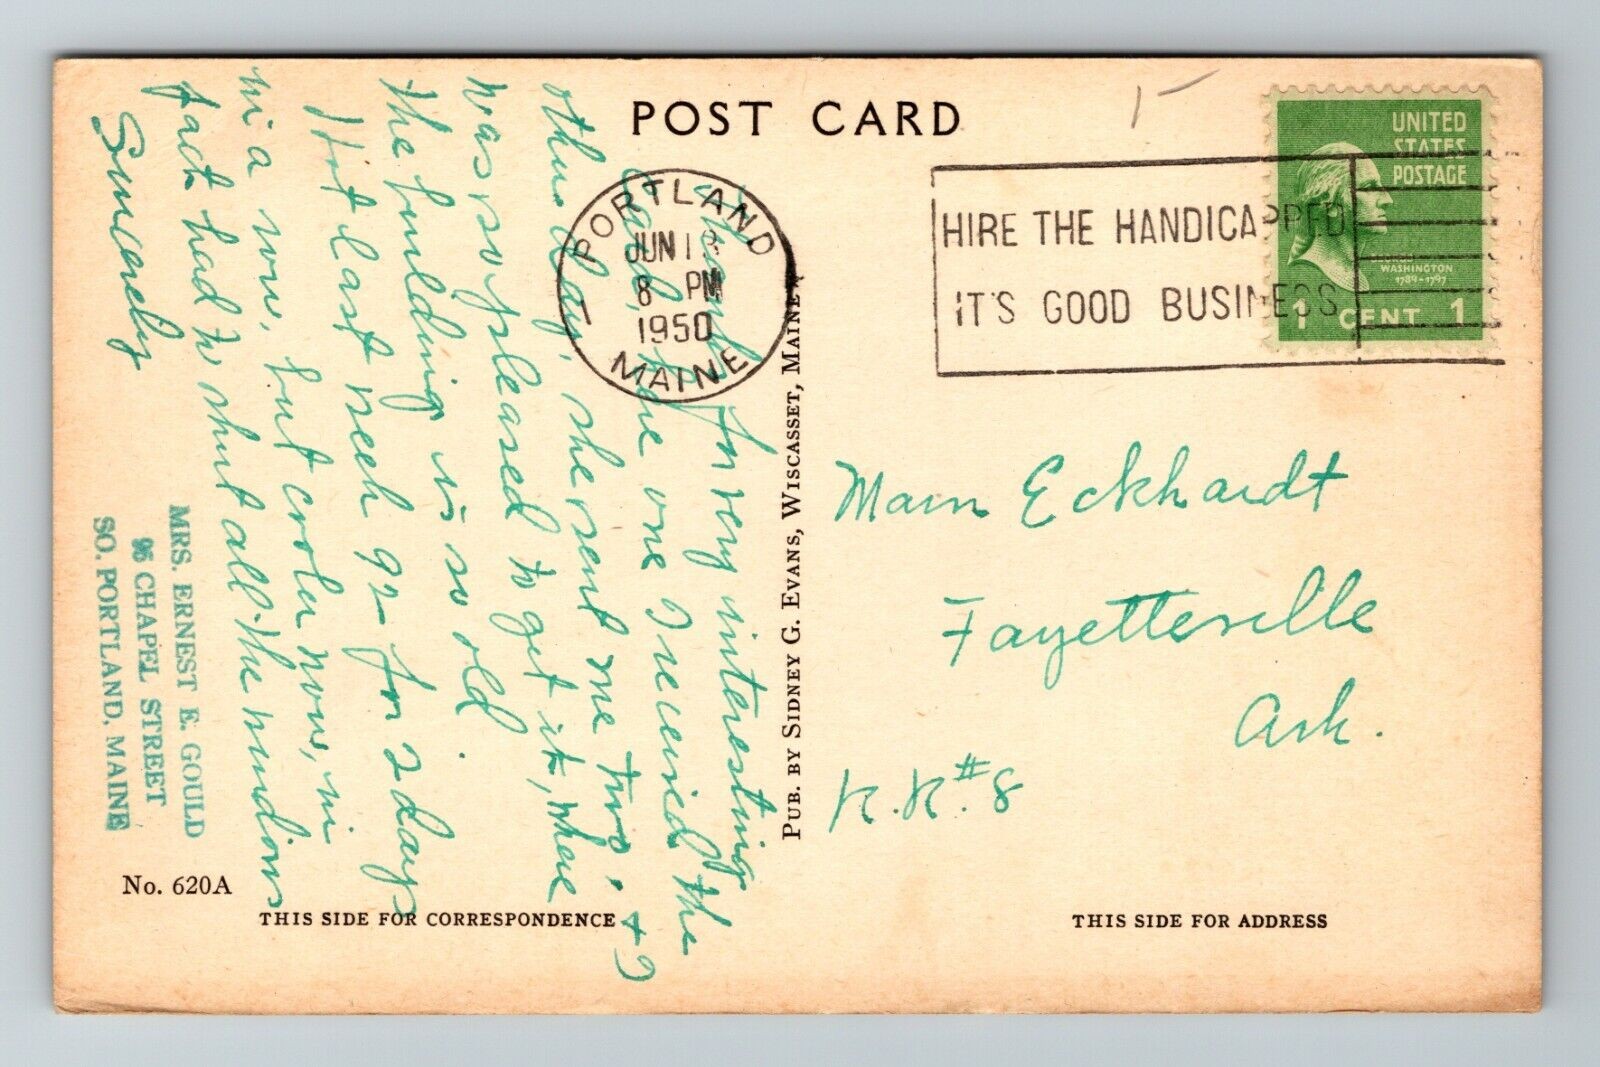 POST CARD
PORTLAND
JUN 1
8 PM
1950
MAINE
HIRE THE HANDICAPPED
IT'S GOOD BUSINESS
UNITED
STATES
POSTAGE
GEORGE
WASHINGTON
1789-1797
1 CENT 1
Thanks for very interesting
card, the one I received the
other day, she sent me two, + I
was so pleased to get it, where
the building is so old.
Hot last week 92 for 2 days
in a row, but cooler now, in
fact had to shut all the windows
Sincerely
MRS. ERNEST E. GOULD
96 CHAPEL STREET
SO. PORTLAND, MAINE
PUB. BY SIDNEY G. EVANS, WISCASSET, MAINE
Eckhardt
Fayetteville
Ark.
R.R.#8
No. 620A
THIS SIDE FOR CORRESPONDENCE
THIS SIDE FOR ADDRESS